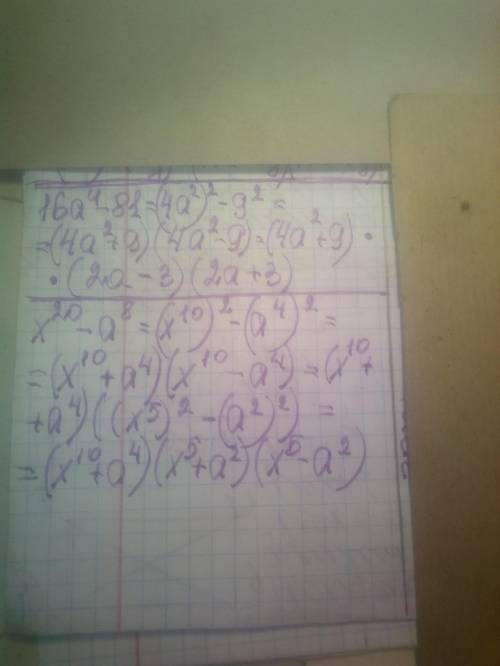 16a⁴-81=(4a²)²-9²=
=(4a²+9)(4a²-9)=(4a²+9)·
·(2a-3)(2a+3)
x²⁰-a⁸=(x¹⁰)²-(a⁴)²=
=(x¹⁰+a⁴)(x¹⁰-a⁴)=(x¹⁰+
+a⁴)((x⁵)²-(a²)²)=
=(x¹⁰+a⁴)(x⁵+a²)(x⁵-a²)